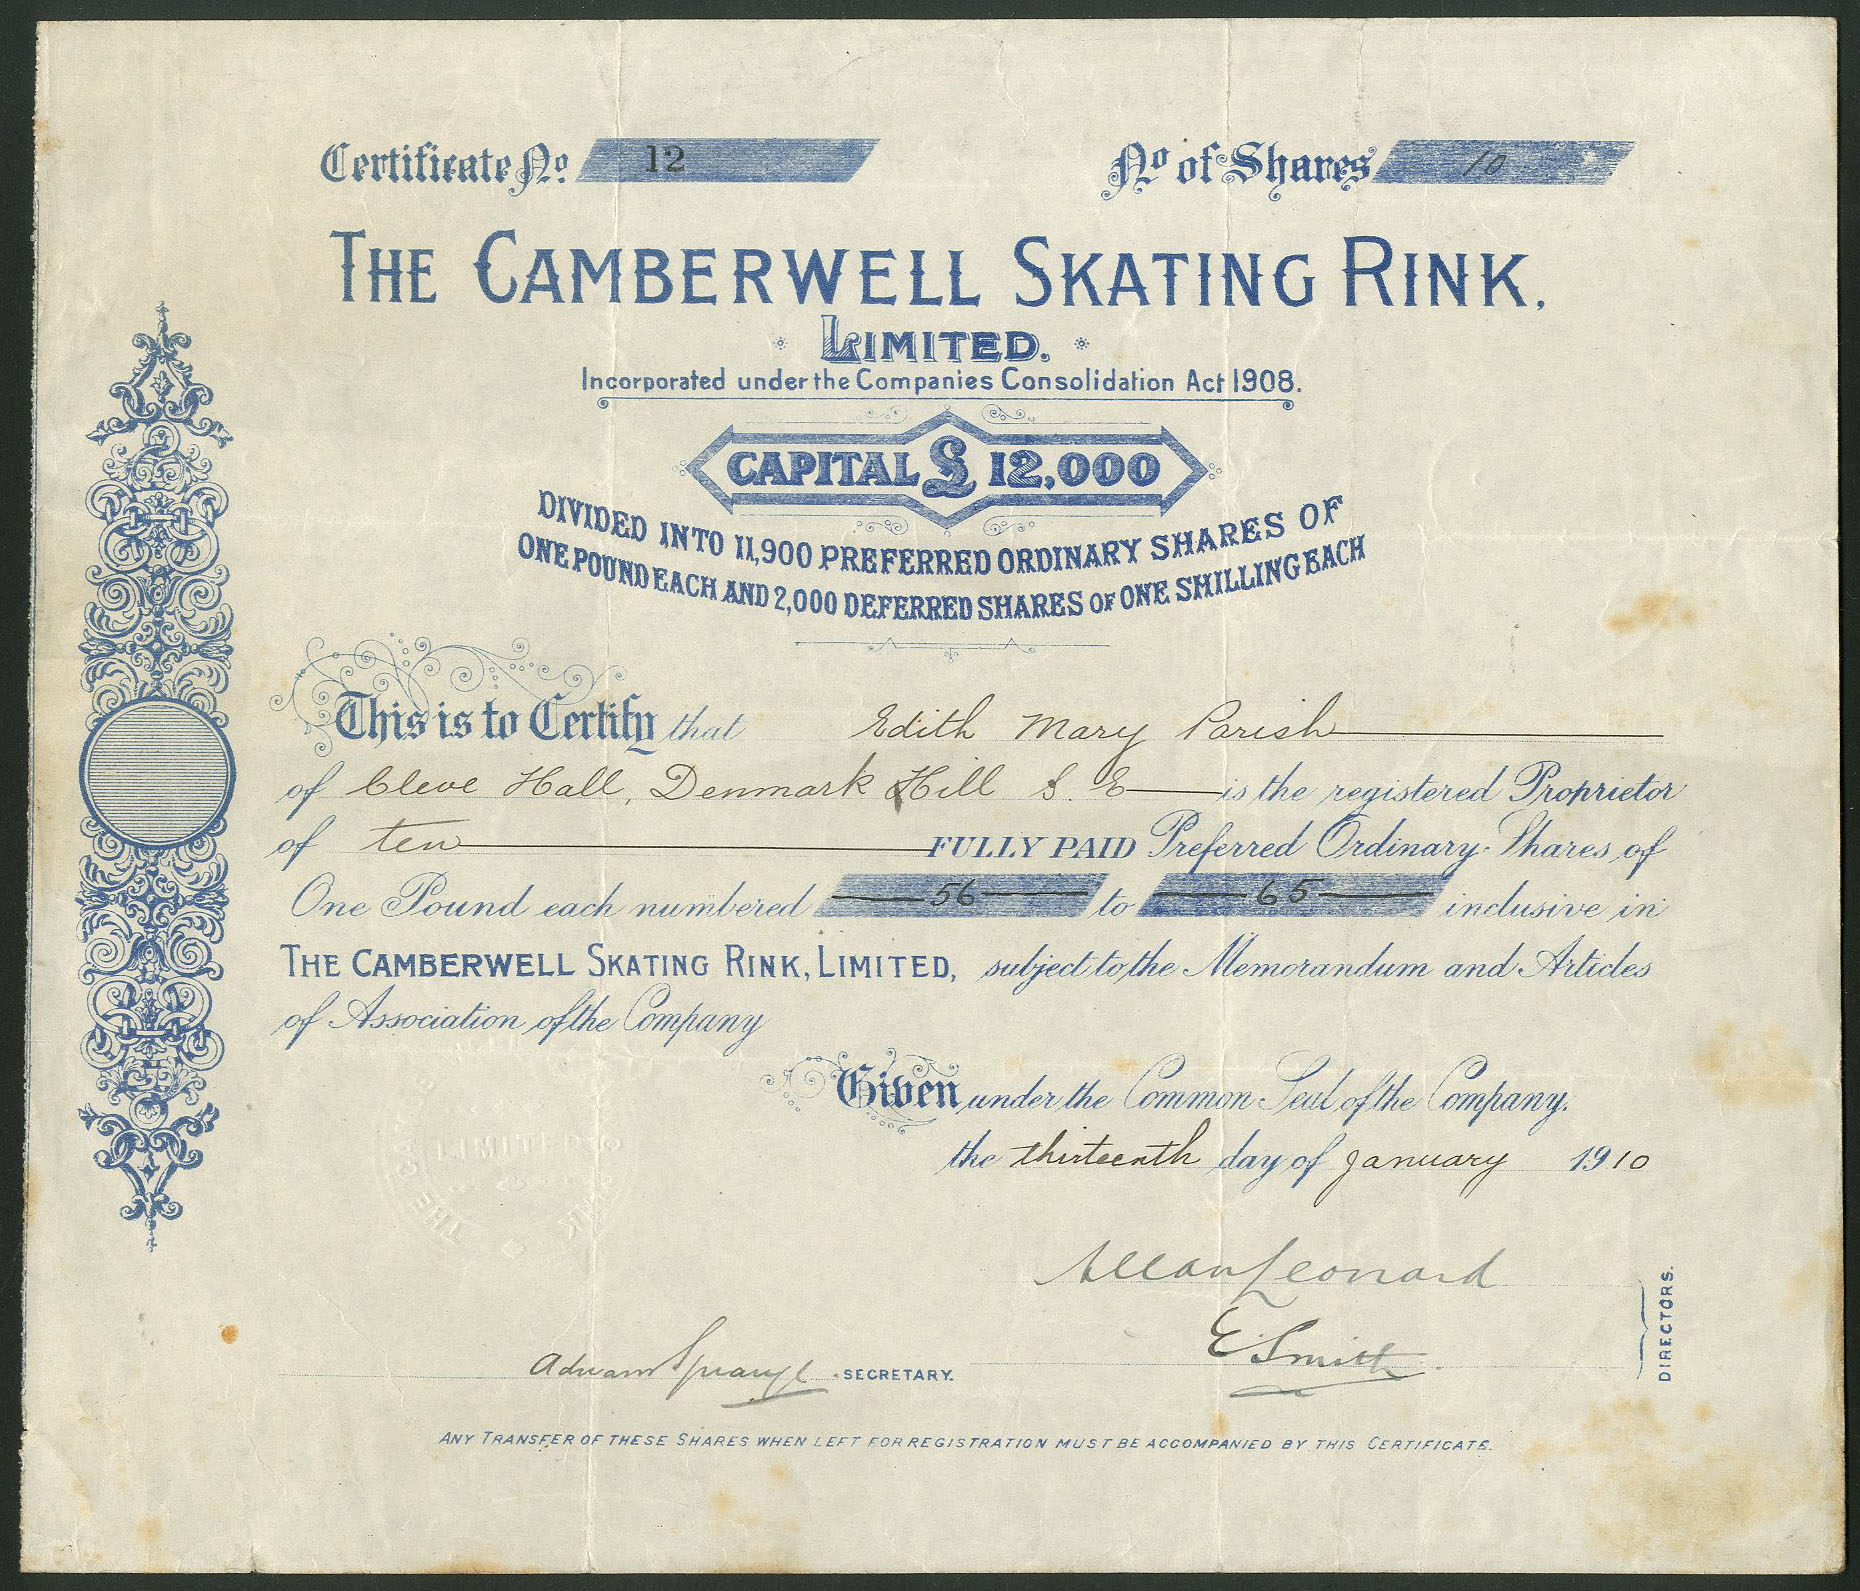 Certificate No. 12
No. of Shares 10
THE CAMBERWELL SKATING RINK,
LIMITED.
Incorporated under the Companies Consolidation Act 1908.
CAPITAL £ 12,000
DIVIDED INTO 11,900 PREFERRED ORDINARY SHARES OF
ONE POUND EACH AND 2,000 DEFERRED SHARES OF ONE SHILLING EACH
This is to Certify that Edith Mary Parish
of Cleve Hall, Denmark Hill S. E is the registered Proprietor
of ten FULLY PAID Preferred Ordinary Shares of
One Pound each numbered 56 to 65 inclusive in
THE CAMBERWELL SKATING RINK, LIMITED, subject to the Memorandum and Articles
of Association of the Company
Given under the Common Seal of the Company.
the thirteenth day of January 1910
LIMITED
THE
Allan Leonard
E Smith
DIRECTORS.
SECRETARY.
ANY TRANSFER OF THESE SHARES WHEN LEFT FOR REGISTRATION MUST BE ACCOMPANIED BY THIS CERTIFICATE.